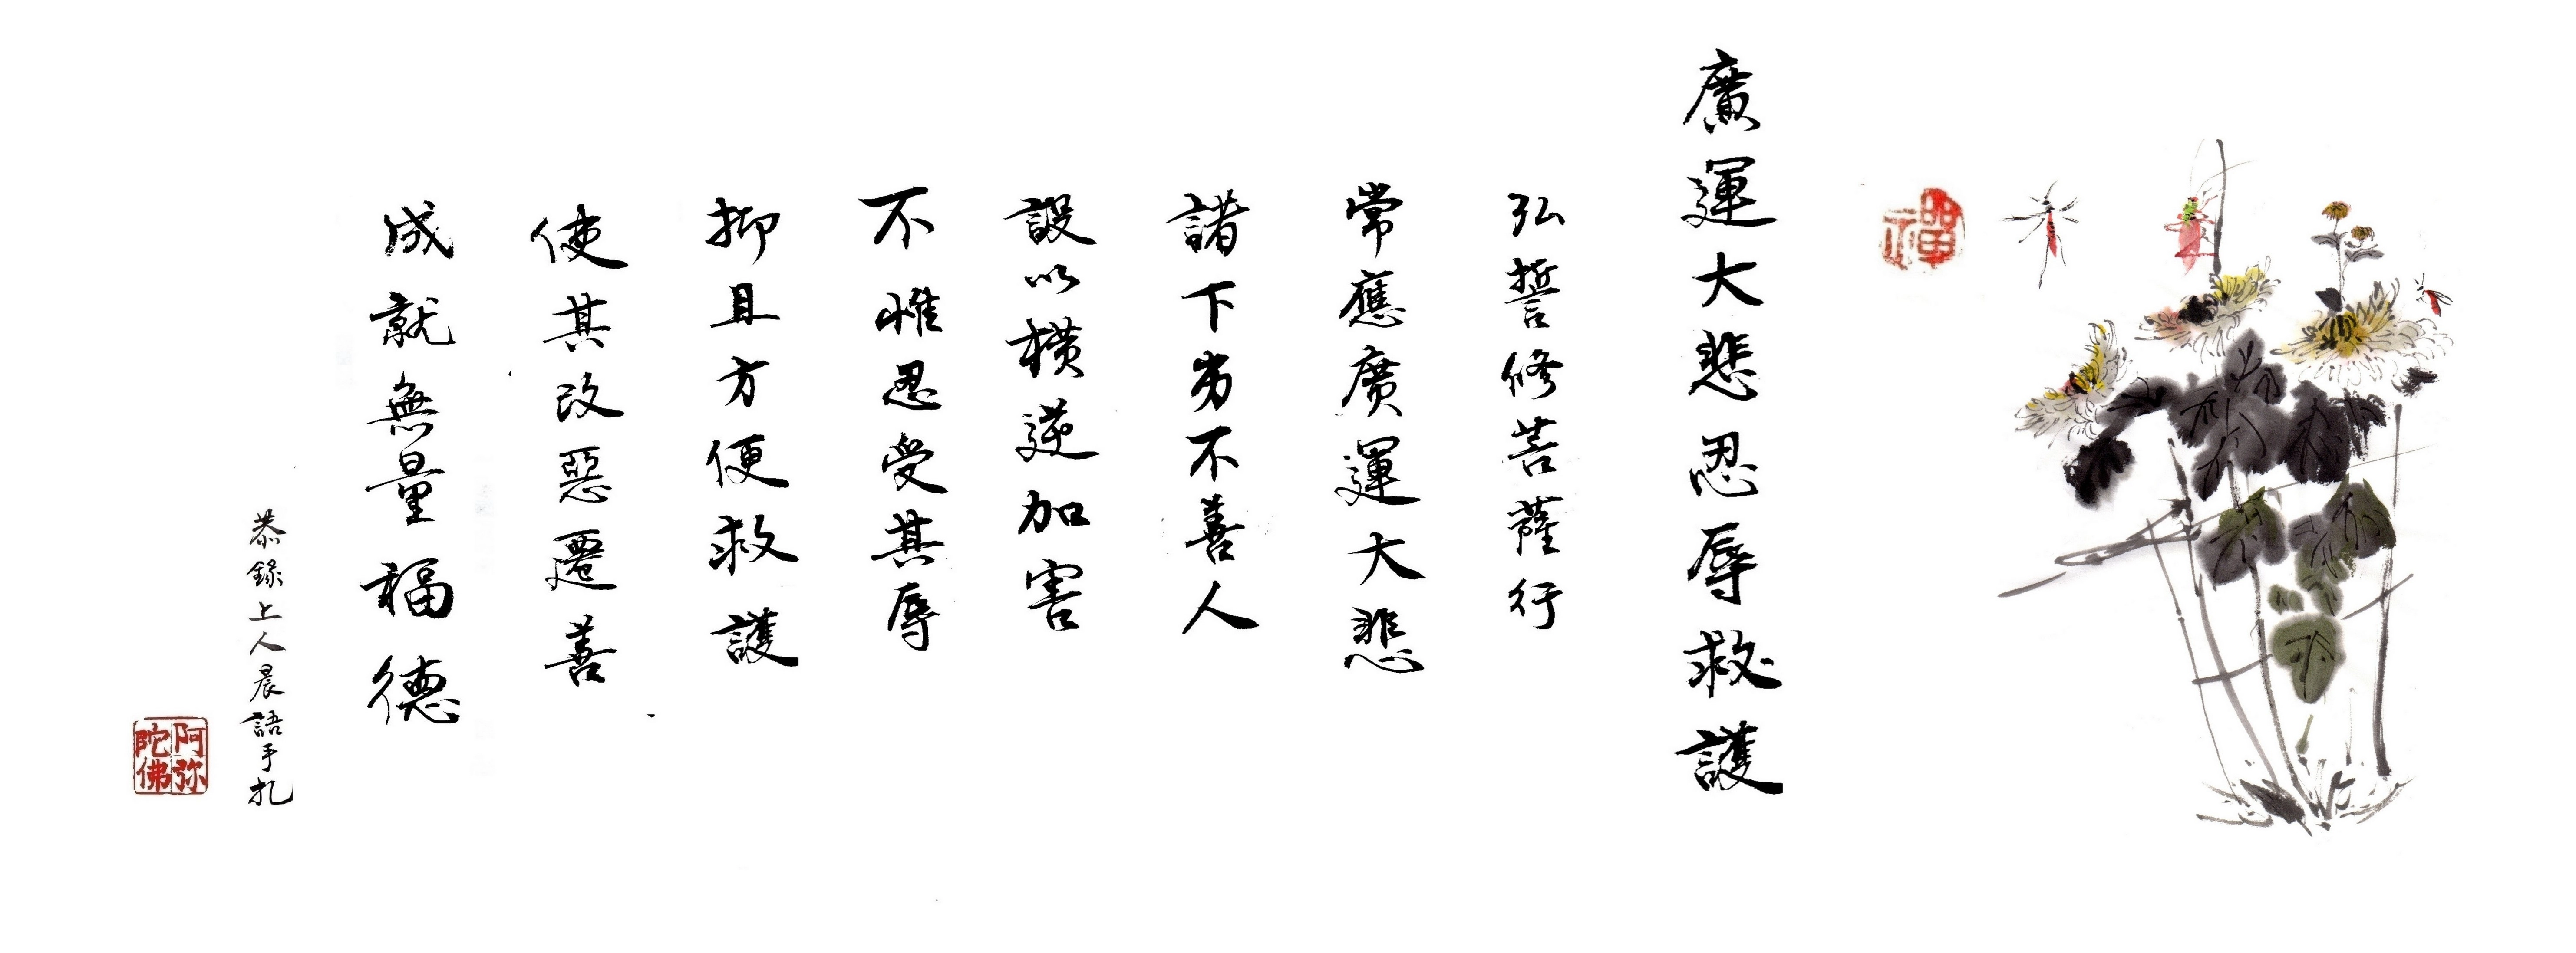 禪
廣運大悲忍辱救護
弘誓修菩薩行
常應廣運大悲
諸下劣不善人
設以橫逆加害
不惟忍受其辱
抑且方便救護
使其改惡遷善
成就無量福德
恭錄上人晨語手札
阿弥
陀佛